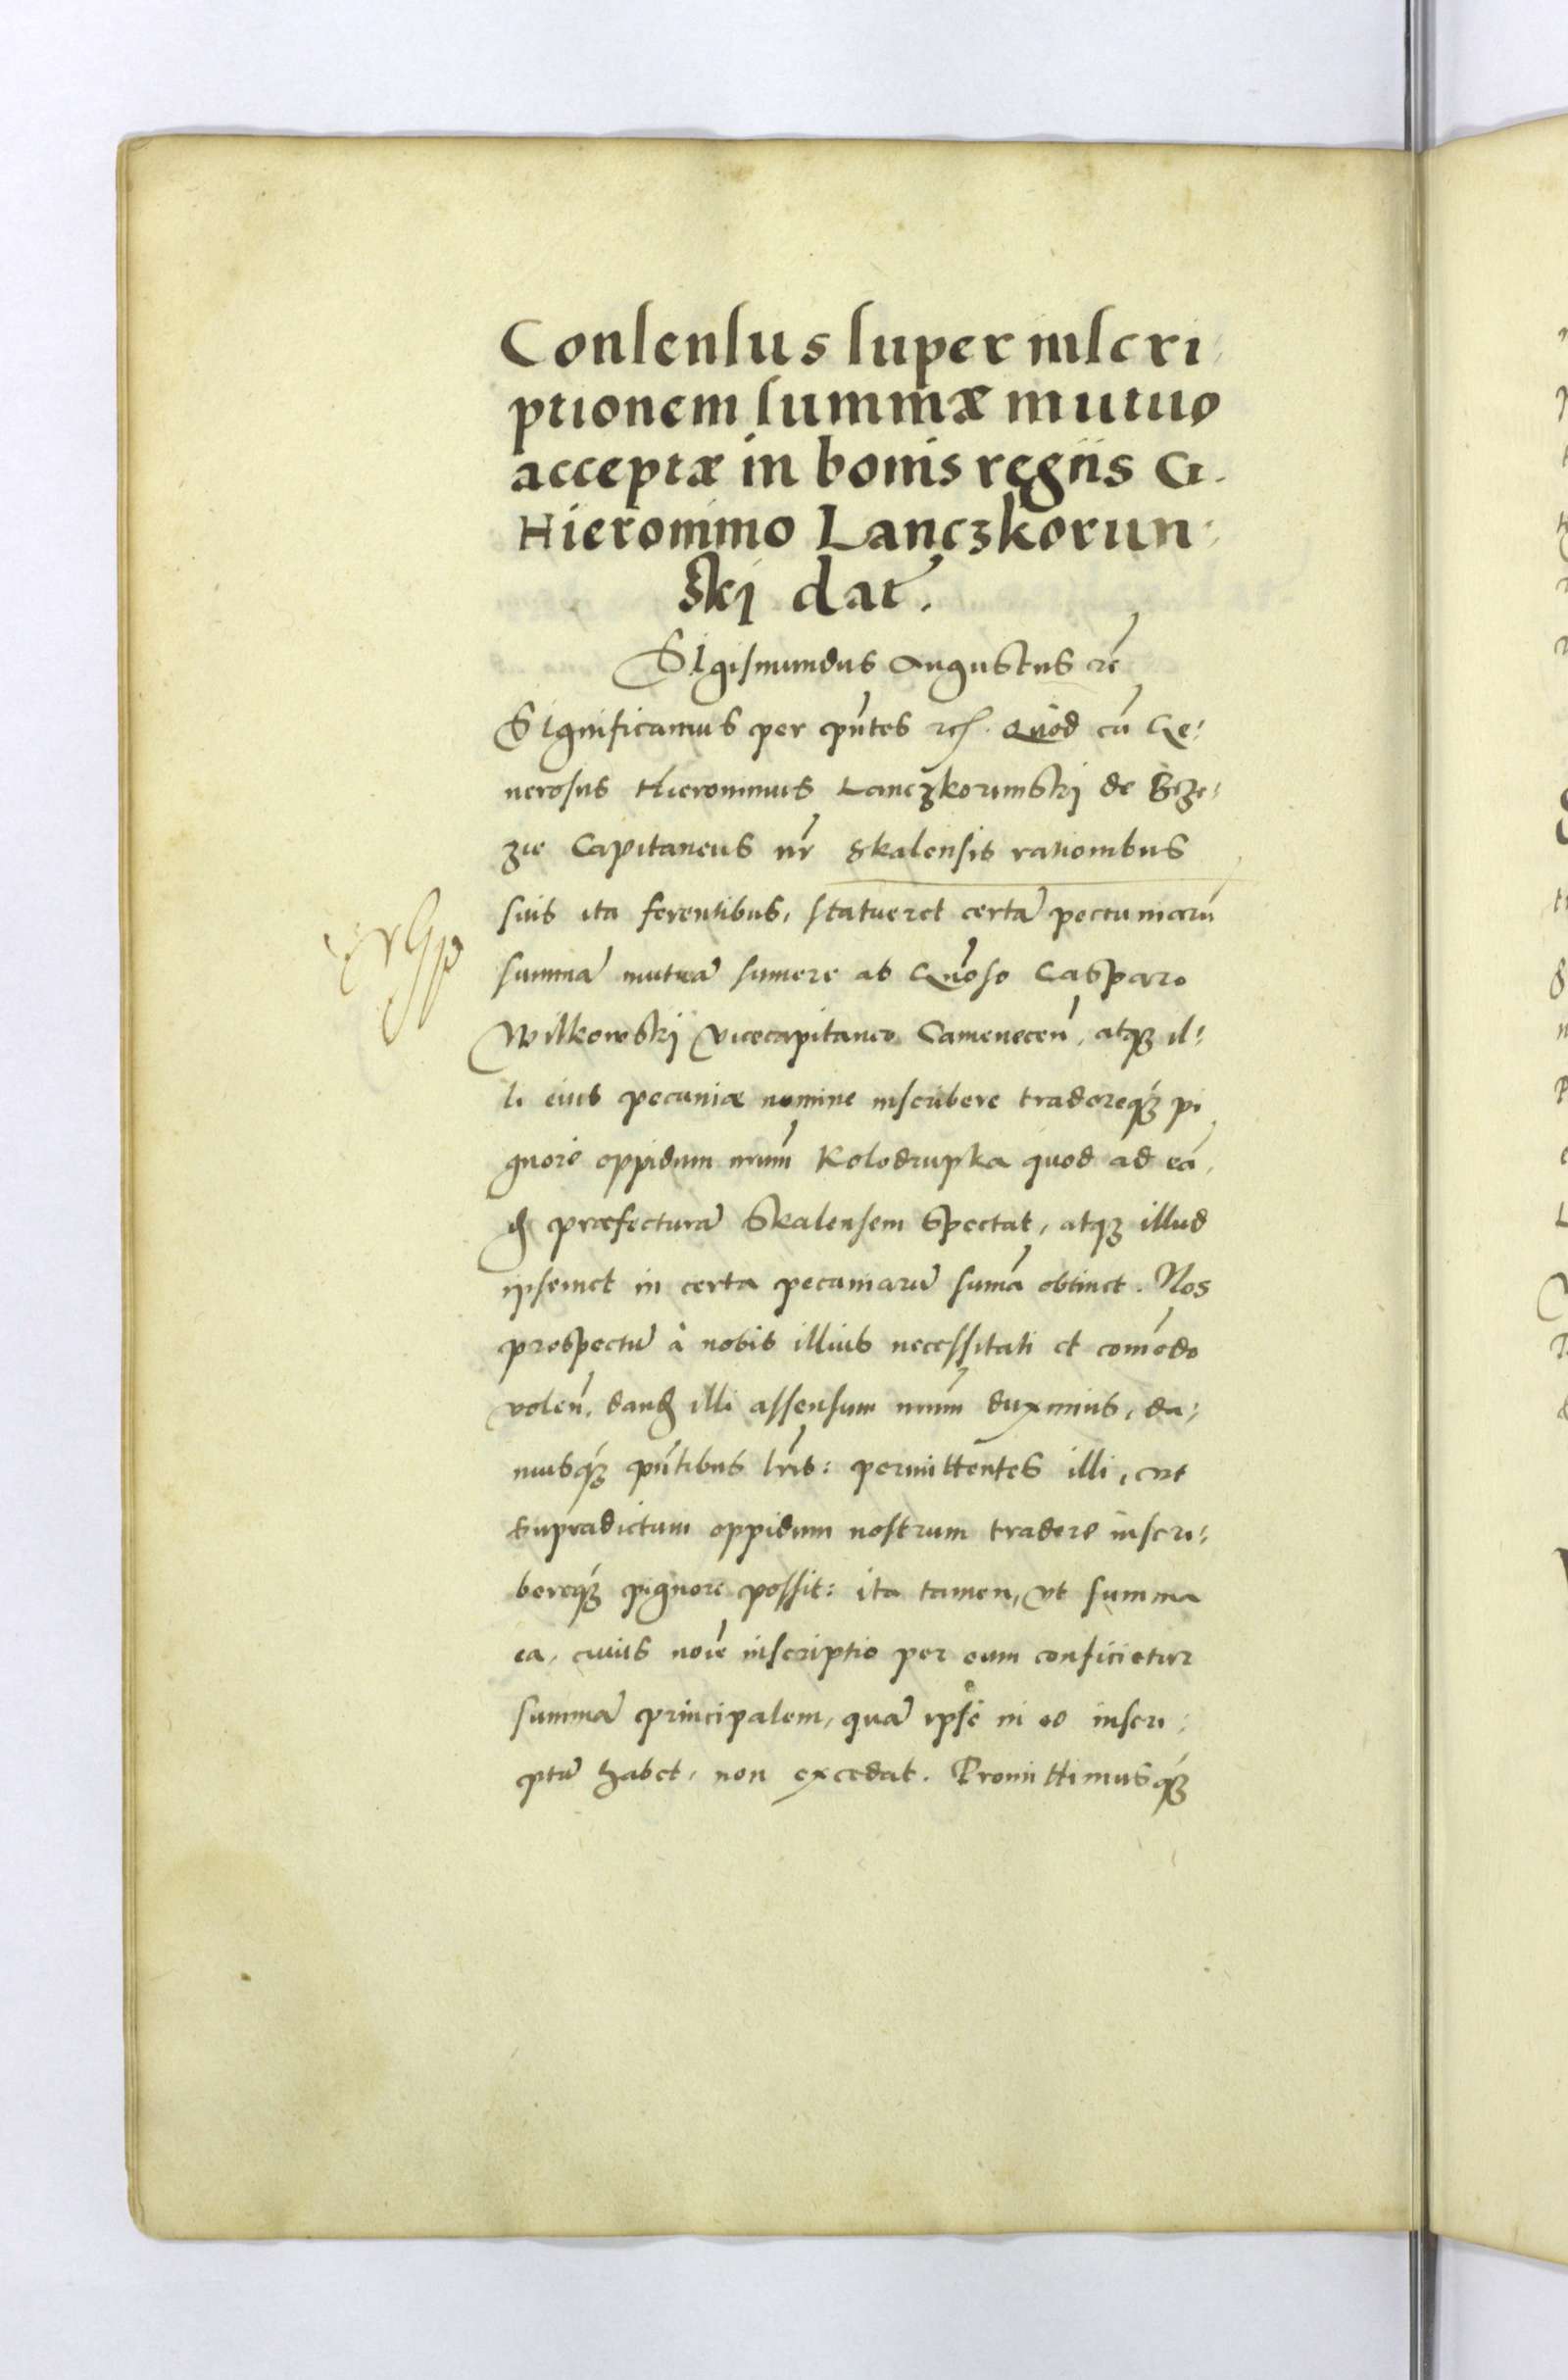 Consensus super inscri:
ptionem summæ mutuo
acceptæ in bonis regiis G.
Hieronimo Lanczkorun:
ski dat.
SIgismundus Augustus etc̃
SIgnificamus per pñtes etc. Quod cũ Ge:
nerosus Hieronimus Lanczkorunskj de Brze:
zie Capitaneus nr̃ Skalensis rationibus
suis ita ferentibus, statueret certã pecuniarũ
summã mutuã sumere ab Gñoso Casparo
Wilkowskj vicecapitaneo Camenecen̄, atqꝫ il:
li eius pecuniæ nomine inscribere tradereqꝫ pi
gnore oppidum nr̃um Kolodrupka quod ad eã
ꝺ præfecturã Skalensem spectat, atqꝫ illud
ipsemet in certa pecuniarũ sum̃a obtinet. Nos
prospectũ à nobis illius necessitati et com̃odo
volen̄, danꝺ illi assensum nr̃um duximus, da:
musqꝫ pñtibus lr̃is: permittentes illi, vt
supradictum oppidum nostrum tradere inscri:
bereqꝫ pignore possit: ita tamen, vt summa
ea, cuius noĩe inscriptio per eum conficietur
summã principalem, quã ipse in eo inscri:
ptã habet, non excedat. Promittimusqꝫ